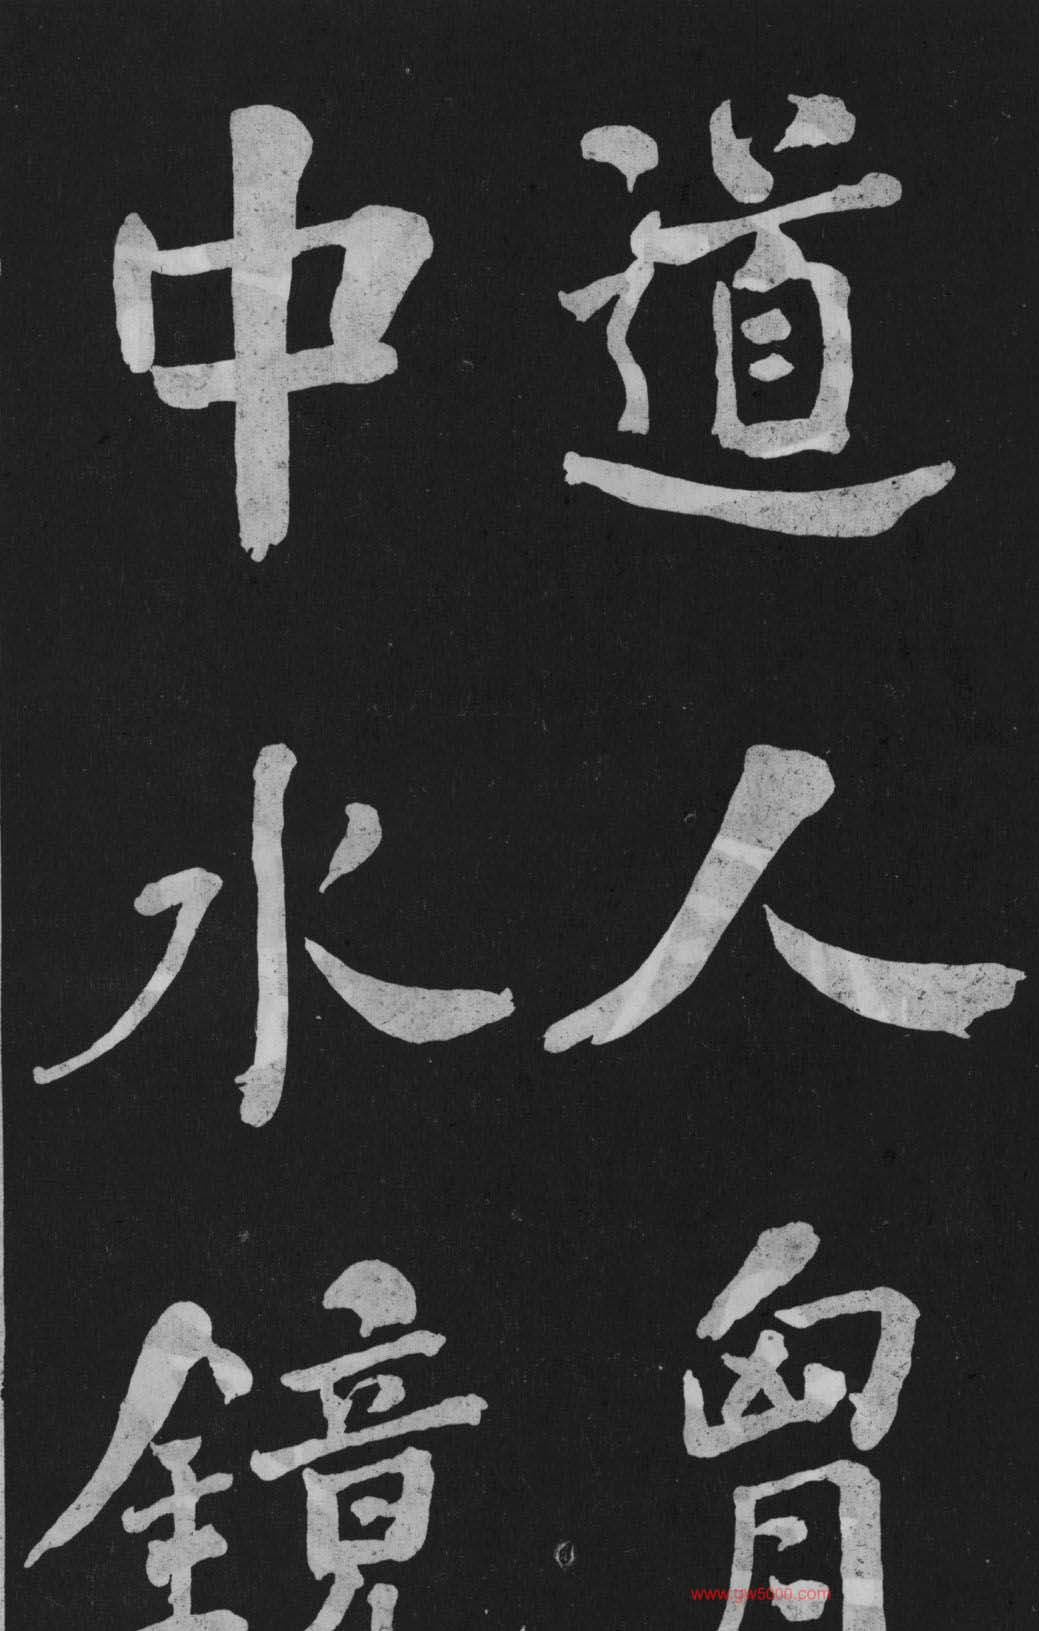 道人胷
中水鏡
www.gw5000.com